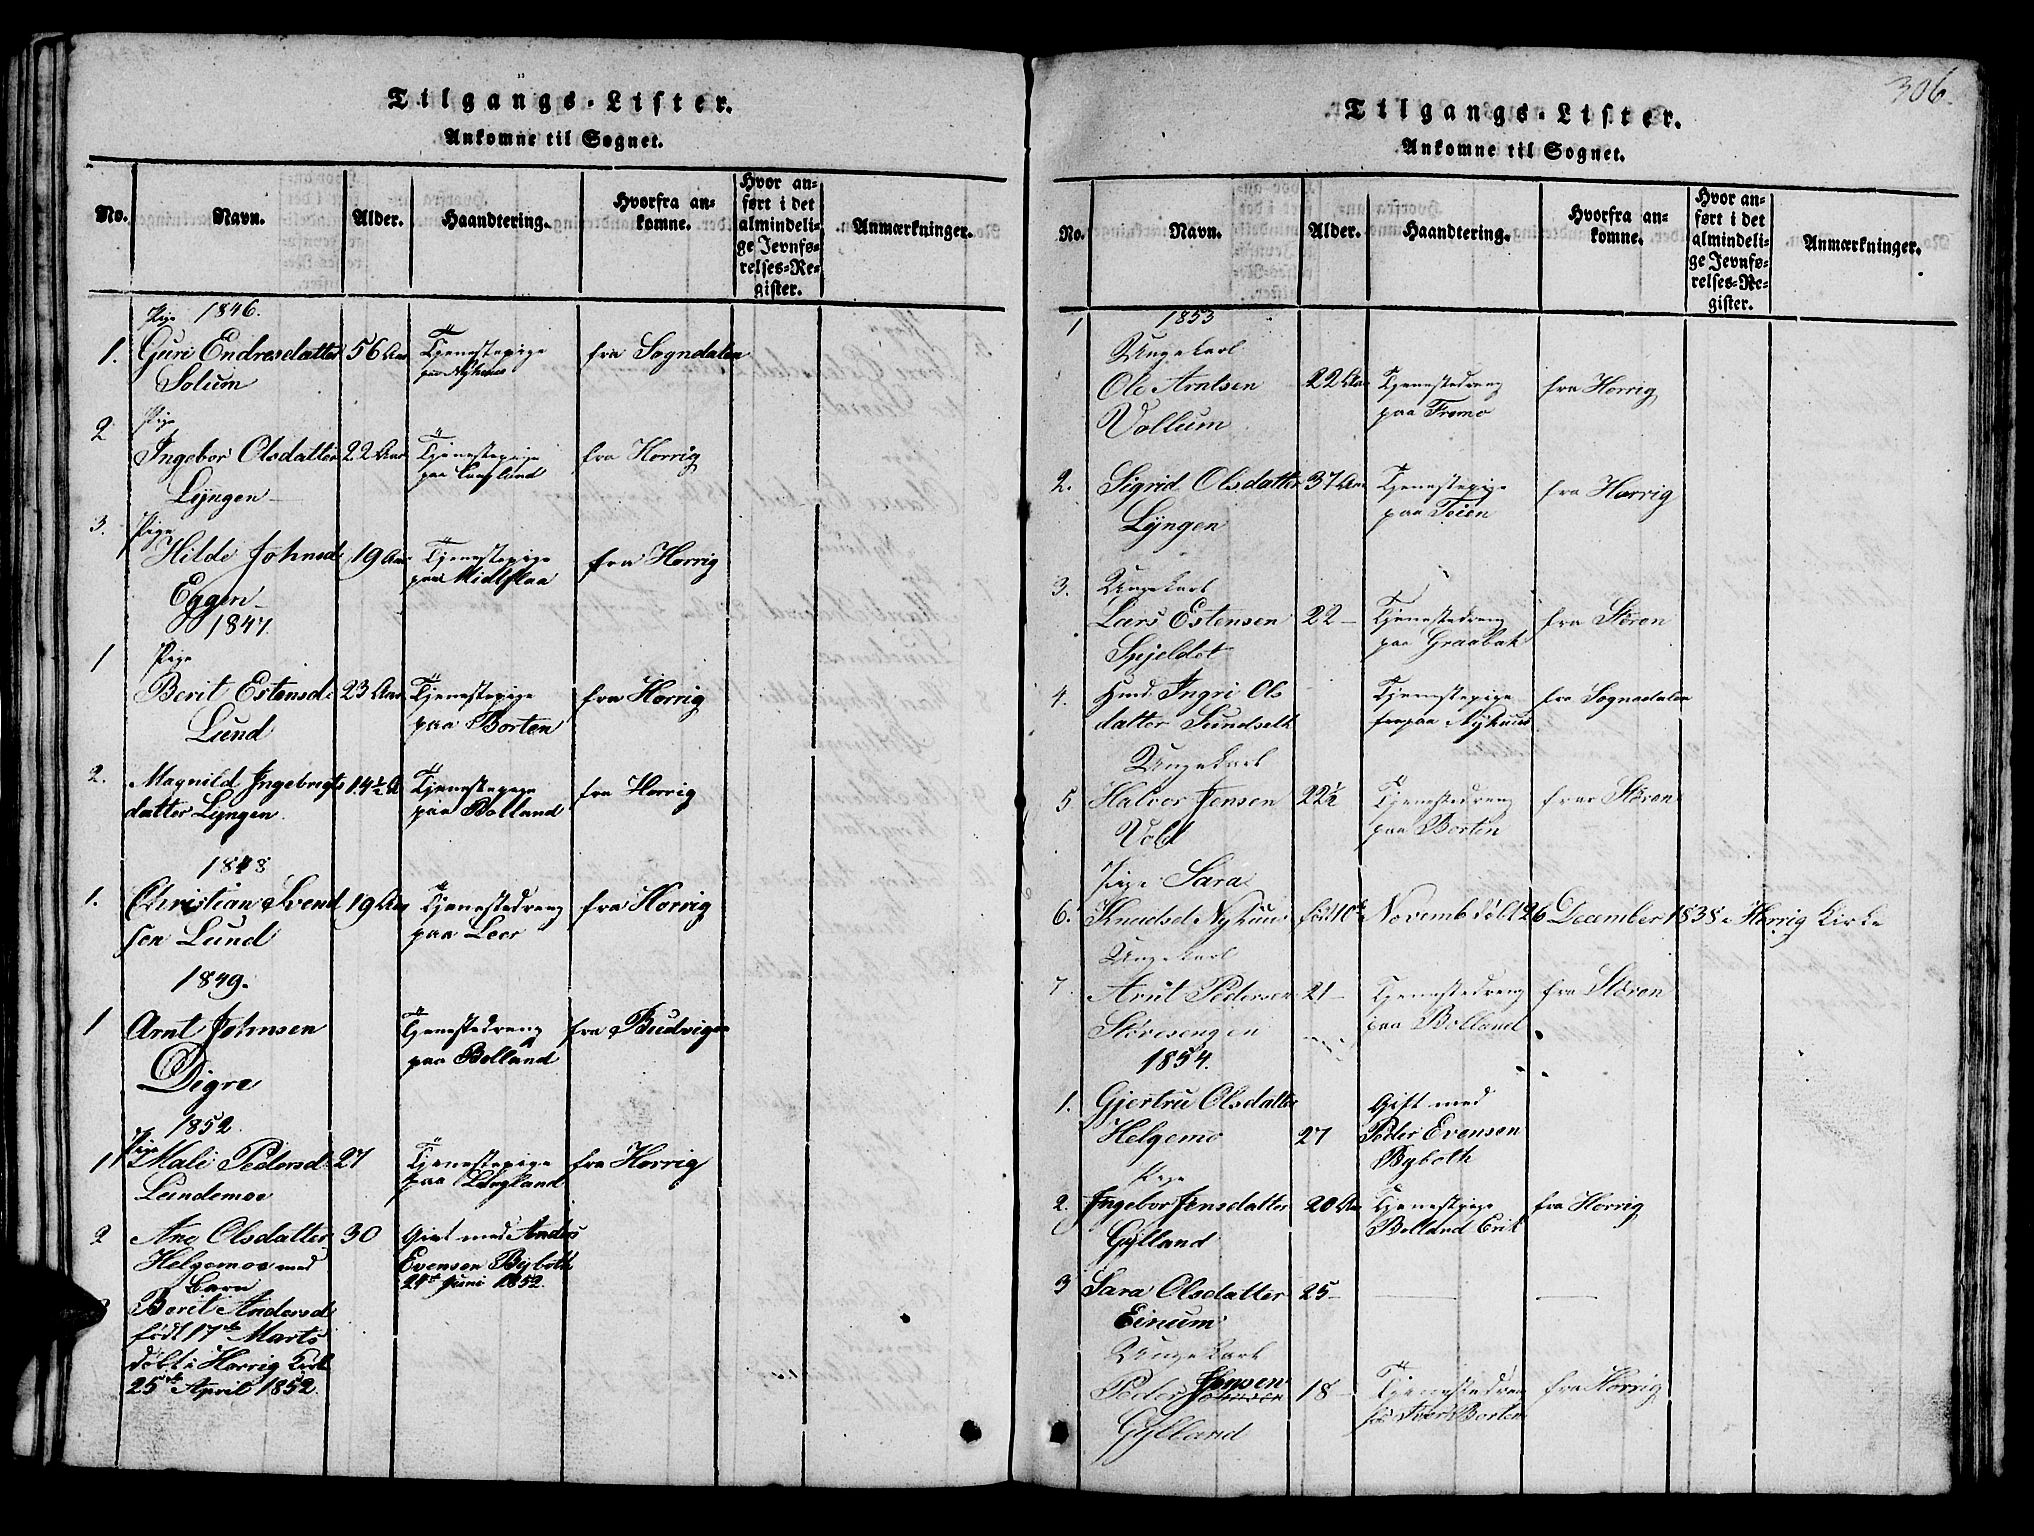 Tilgangs-Lister.
Ankomne til Sognet.
No. Navn. Alder. Haandtering. Hvorfra ankomne. Hvor anført i det almindelige Jevnførelses-Register. Anmærkninger.
Pige 1846.
1. Guri Endresdatter 56 Aar Tjenestepige fra Sogndalen
Solum paa Nyhuus
Pige
2 Ingebor Olsdatter 22 Aar Tjenestepige fra Horrig
Lyngen paa Langland
3. Pige
Hilde Johnsd 19 Aar Tjenestepige fra Horrig
Eggen paa Midtflaa
1847.
1 Pige
Berit Estensd 23 Aar Tjenestepige fra Horrig
Lund paa Borten
2. Magnild Ingebrigts 14½ A Tjenestepige fra Horrig
datter Lyngen paa Bolland
1848
1. Christian Svend 19 Aar Tjenestedreng fra Horrig
sen Lund paa Leer
1849.
1 Arnt Johnsen Tjenestedreng fra Budvigen
Digre paa Bolland
1852.
Pige
1 Mali Pedersd 27 Tjenestepige fra Horrig
Lundemoe paa Langland
2 Ane Olsdatter 30 Givt med Anders
Helgemoe med Evensen Byboth
Barn 21de Juni 1852.
Berit Andersd
født 17de Marts
døbt i Horrig Kirk
25de April 1852.
306.
Tilgangs-Lister.
Ankomne til Sognet.
No. Navn. Alder. Haandtering. Hvorfra ankomne. Hvor anført i det almindelige Jevnførelses-Register. Anmærkninger.
1 1853
Ungekarl
Ole Arntsen 22 Aar Tjenestedreng fra Horrig
Vollum paa Fremo
2. Sigrid Olsdatter 37 Aar Tjenestepige fra Horrig
Lyngen paa Teien
3. Ungekarl
Lars Estensen 22 — Tjenestedreng fra Støren
Spjeldet paa Graabak
4. Ingri Ols Tjenestepige fra Sognedalen
datter Sundseth paa Nyhuus
Ungekarl
5 Halvor Jensen 22½ Tjenestedreng fra Støren
Vold paa Borten
Pige Sara
6. Knudsd Nyhuus født 10de Novemb døbt 26 December 1838 i Horrig Kirke
Ungekarl
7. Arnt Pedersen 21 — Tjenestedreng fra Støren
Støresengen paa Bolland
1854.
1. Gjertru Olsdatter Gift med
Helgemo 27 Peder Evensen
Byboth
Pige
2. Ingebor Jensdatter 20 Aar Tjenestepige fra Horrig
Gylland Bolland Erik
3 Sara Olsdatter 25 — — —
Einum
Ungekarl
Jensen
Peder Johnsen 18 — Tjenestedren fra Horrig
Gylland hos Iver Borten